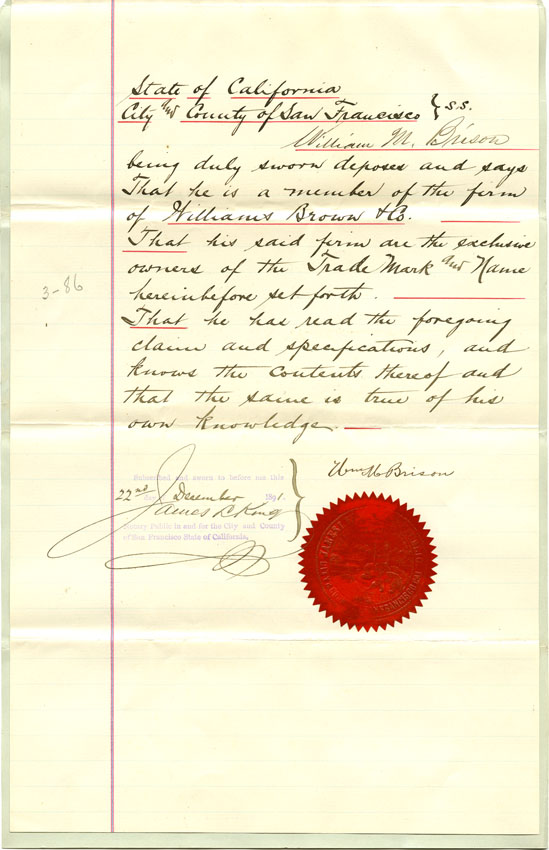 State of California
City and County of San Francisco } s.s.
William M. Brison
being duly sworn deposes and says
That he is a member of the firm
of Williams Brown & Co.
That his said firm are the exclusive
owners of the Trade Mark and Name
hereinbefore set forth.
3-86
That he has read the foregoing
claim and specifications, and
knows the Contents thereof and
that the same is true of his
own knowledge.
Wm M Brison
Subscribed and sworn to before me this
22nd day December 1891.
James L King
Notary Public in and for the City and County
of San Francisco State of California.